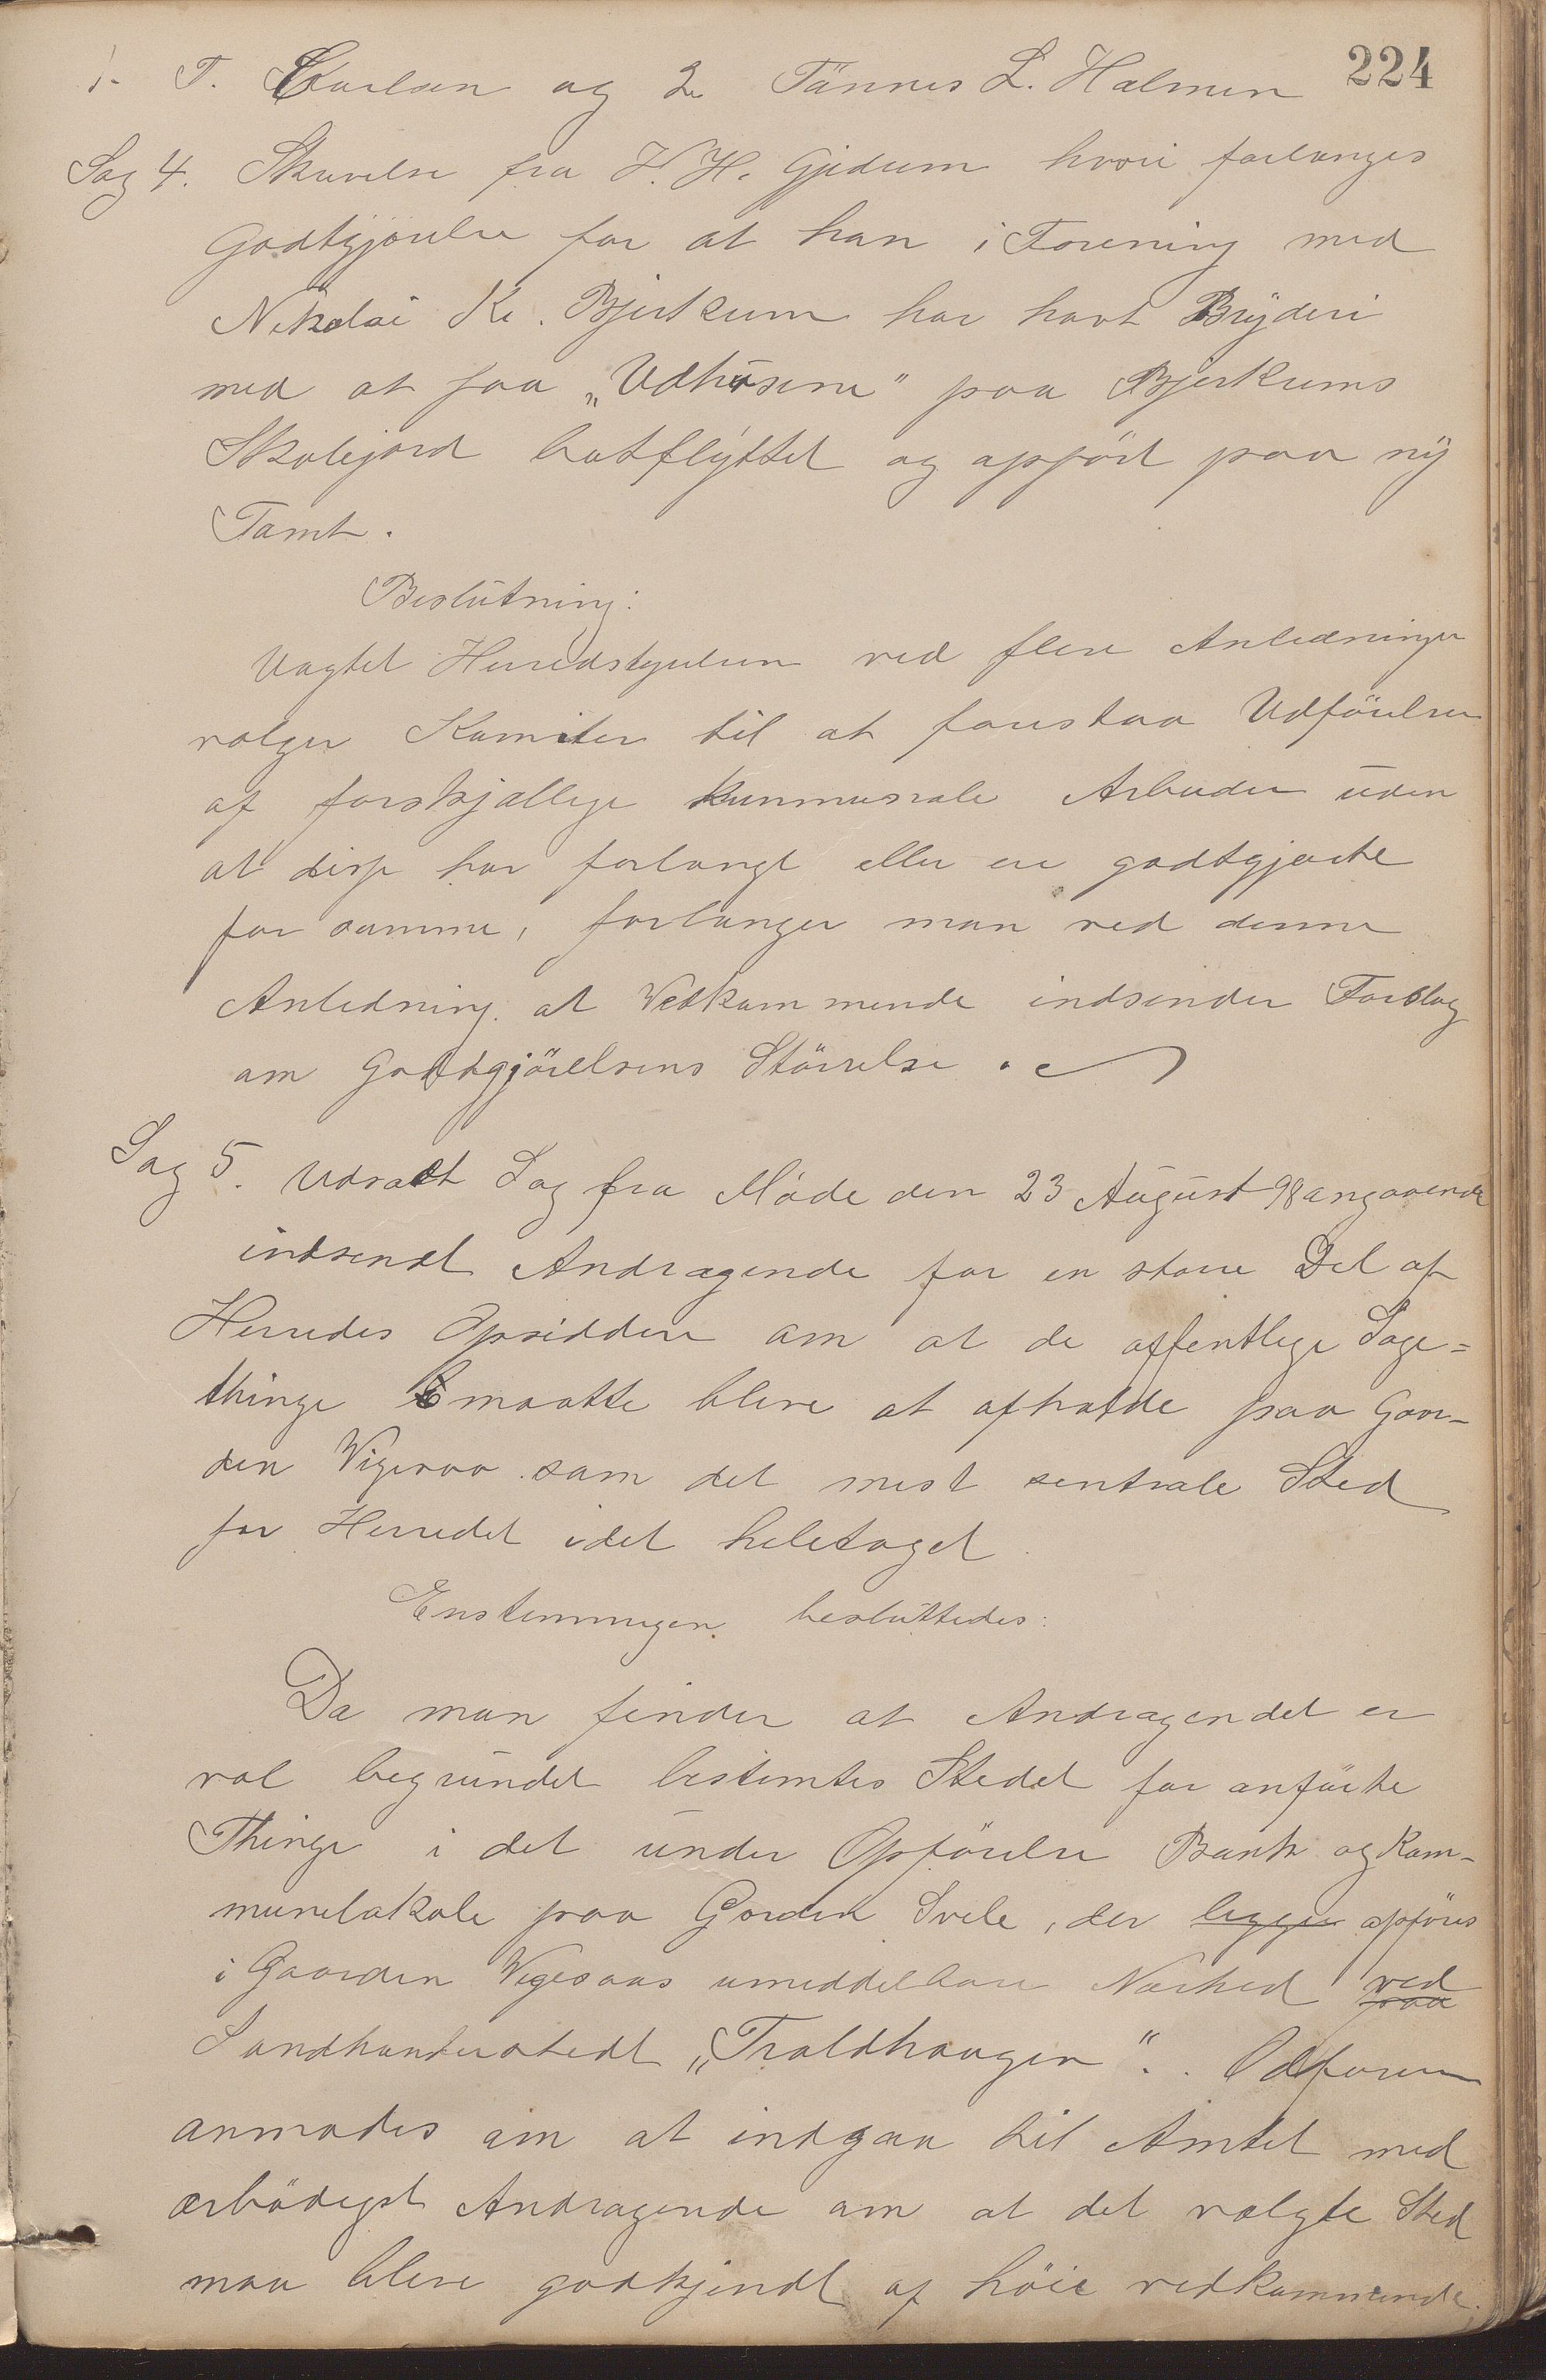 224
1. T. Carlsen og 2. Tönnes L. Halmen
Sag 4. Skrivelse fra H. H. Gjedum hvori forlanges
Godtgjörelse for at han i Forening med
Nikolai Kr. Bjerkum har havt Brÿderi
med at faa „Udhüsene" paa Bjerkums
Skolejord bortflÿttet og opfört paa nÿ
Tomt.
Beslütning:
Uagtet Herredstyrelsen ved flere Anledninger
vælger Komiteer til at forestaa Udförelsen
af forskjællige kummunale Arbeider üden
at disse har forlangt eller er godtgjorte
for samme, forlanger man ved denne
Anledning at Vedkommende indsender Forslag
om Godtgjörelsens Störrelse.
Sag 5. Udsat Sag fra Möde den 23 Aügust 98 angaaende
indsendt Andragende for en större Del af
Herredes Opsiddere om at de offentlige Sage=
thinge maatte blive at afholde paa Gaar-
den Vigesaa som det mest sentrale Sted
for Herredet idet heletaget.
Enstemmigen beslüttedes:
Da man finder at Andragendet er
vel begründet bestemtes Stedet for anförte
Thinge i det ünder Opförelse Bank og Kom-
munelokale paa Gorden Svele, der ligger opföres
i Gaarden Vigesaas umiddelbare Nærhed ved
paa
Landhandlerstedt „Traldhaugen". Ordföreren
anmodes om at indgaa til Amtet med
ærbödigst Andragende om at det valgte Sted
maa blive godkjendt af höie vedkommende.